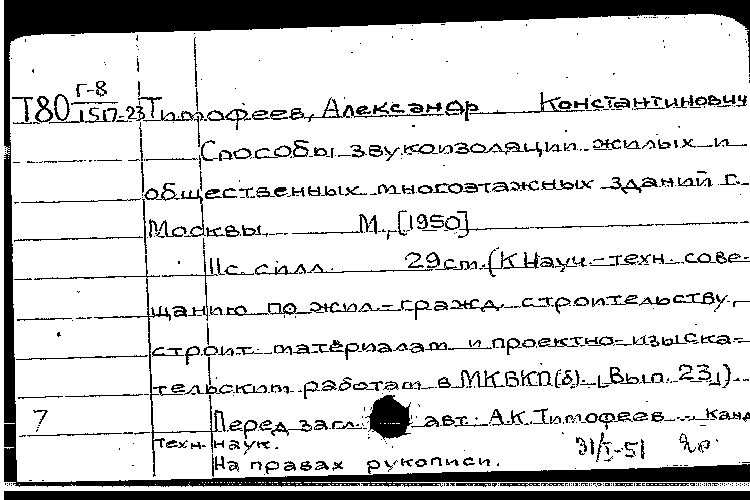 Г-8
Т80 15П-23 Тимофеев, Александр Константинович
Способы звукоизоляции жилых и
общественных многоэтажных зданий г.
Москвы. М., [1950]
11с. с илл. 29см. (К Науч.-техн. сове-
щанию по жил.-гражд. строительству,
строит. материалам и проектно-изыска-
тельским работам в МК ВКП(б). [Вып. 23]).
7 Перед загл. авт.: А.К. Тимофеев... канд.
техн. наук.
31/I-51
На правах рукописи.